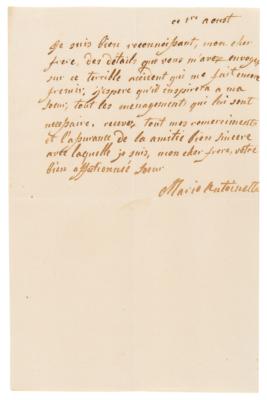 ce 1er aoust
Je suis bien reconnoissant, mon cher
frere, des détails que vous m'avez envoyé
sur ce terrible accident qui me fait encore
fremir, j'espere qu'il inspirera a ma
soeur, tout les menagements qui lui sont
necessaire. recevez, tout mes remerciments
et l'assurance de la amitié bien sincere
avec laquelle je suis, mon cher frere, votre
bien affectionnée soeur
Marie Antoinette